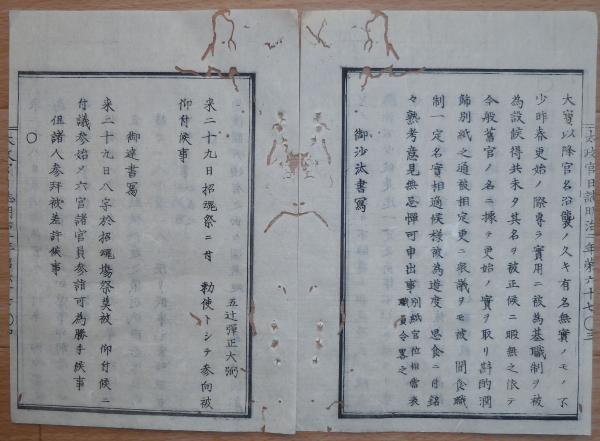 太政官日誌明治二年第六十七 ○三
大寶以降官名沿襲ノ久キ有名無實ノモノ不
少昨春更始ノ際專ラ實用ニ被為基職制ヲ被
為設候得共未タ其名ヲ被正候ニ暇無之依テ
今般舊官ノ名ニ據テ更始ノ實ヲ取リ斟酌潤
飾別紙之通被相定更ニ衆議ヲモ被 聞食職
制一定名實相適候樣被為遊度 思食ニ付銘
々熟考意見無忌憚可申出事 別紙官位相當表
職員令畧之
御沙汰書寫
五辻彈正大弼
来二十九日招魂祭ニ付 勅使トシテ參向被
仰付候事
御達書寫
来二十九日八字於招魂塲祭奠被 仰付候ニ
付議參始メ六官諸官員參詣可為勝手候事
但諸人參拜被差許候事
○